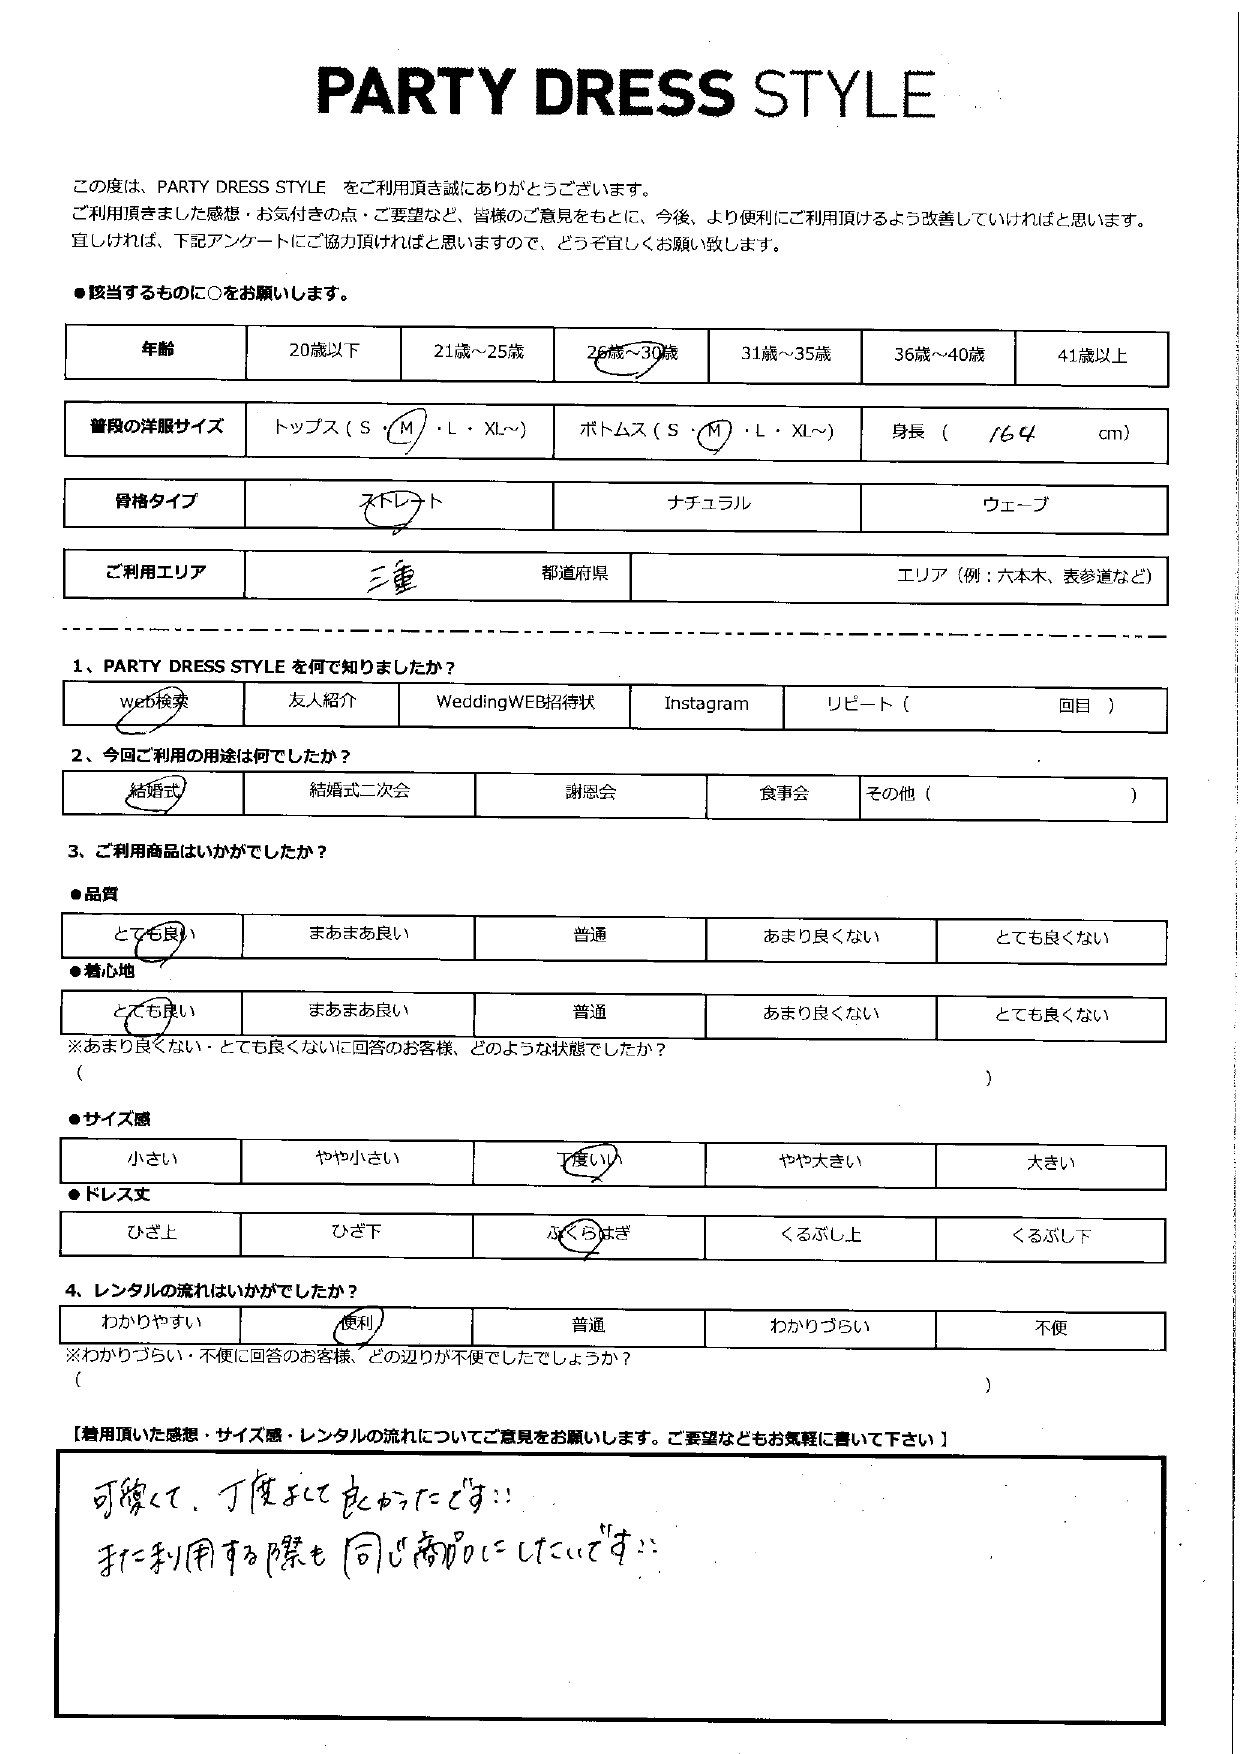 PARTY DRESS STYLE
この度は、PARTY DRESS STYLE をご利用頂き誠にありがとうございます。
ご利用頂きました感想・お気付きの点・ご要望など、皆様のご意見をもとに、今後、より便利にご利用頂けるよう改善していければと思います。
宜しければ、下記アンケートにご協力頂ければと思いますので、どうぞ宜しくお願い致します。
●該当するものに○をお願いします。
年齢 20歳以下 21歳～25歳 26歳～30歳 31歳～35歳 36歳～40歳 41歳以上
普段の洋服サイズ トップス ( S ・ M ・ L ・ XL～) ボトムス ( S ・ M ・ L ・ XL～) 身長 ( 164 cm)
骨格タイプ ストレート ナチュラル ウェーブ
ご利用エリア 三重 都道府県 エリア（例：六本木、表参道など）
1、PARTY DRESS STYLE を何で知りましたか？
web検索 友人紹介 WeddingWEB招待状 Instagram リピート（ 回目 ）
2、今回ご利用の用途は何でしたか？
結婚式 結婚式二次会 謝恩会 食事会 その他（ ）
3、ご利用商品はいかがでしたか？
●品質
とても良い まあまあ良い 普通 あまり良くない とても良くない
●着心地
とても良い まあまあ良い 普通 あまり良くない とても良くない
※あまり良くない・とても良くないに回答のお客様、どのような状態でしたか？
（ ）
●サイズ感
小さい やや小さい 丁度いい やや大きい 大きい
●ドレス丈
ひざ上 ひざ下 ふくらはぎ くるぶし上 くるぶし下
4、レンタルの流れはいかがでしたか？
わかりやすい 便利 普通 わかりづらい 不便
※わかりづらい・不便に回答のお客様、どの辺りが不便でしたでしょうか？
（ ）
【着用頂いた感想・サイズ感・レンタルの流れについてご意見をお願いします。ご要望などもお気軽に書いて下さい 】
可愛くて、丁度よくて良かったです!!
また利用する際も同じ商品にしたいです!!